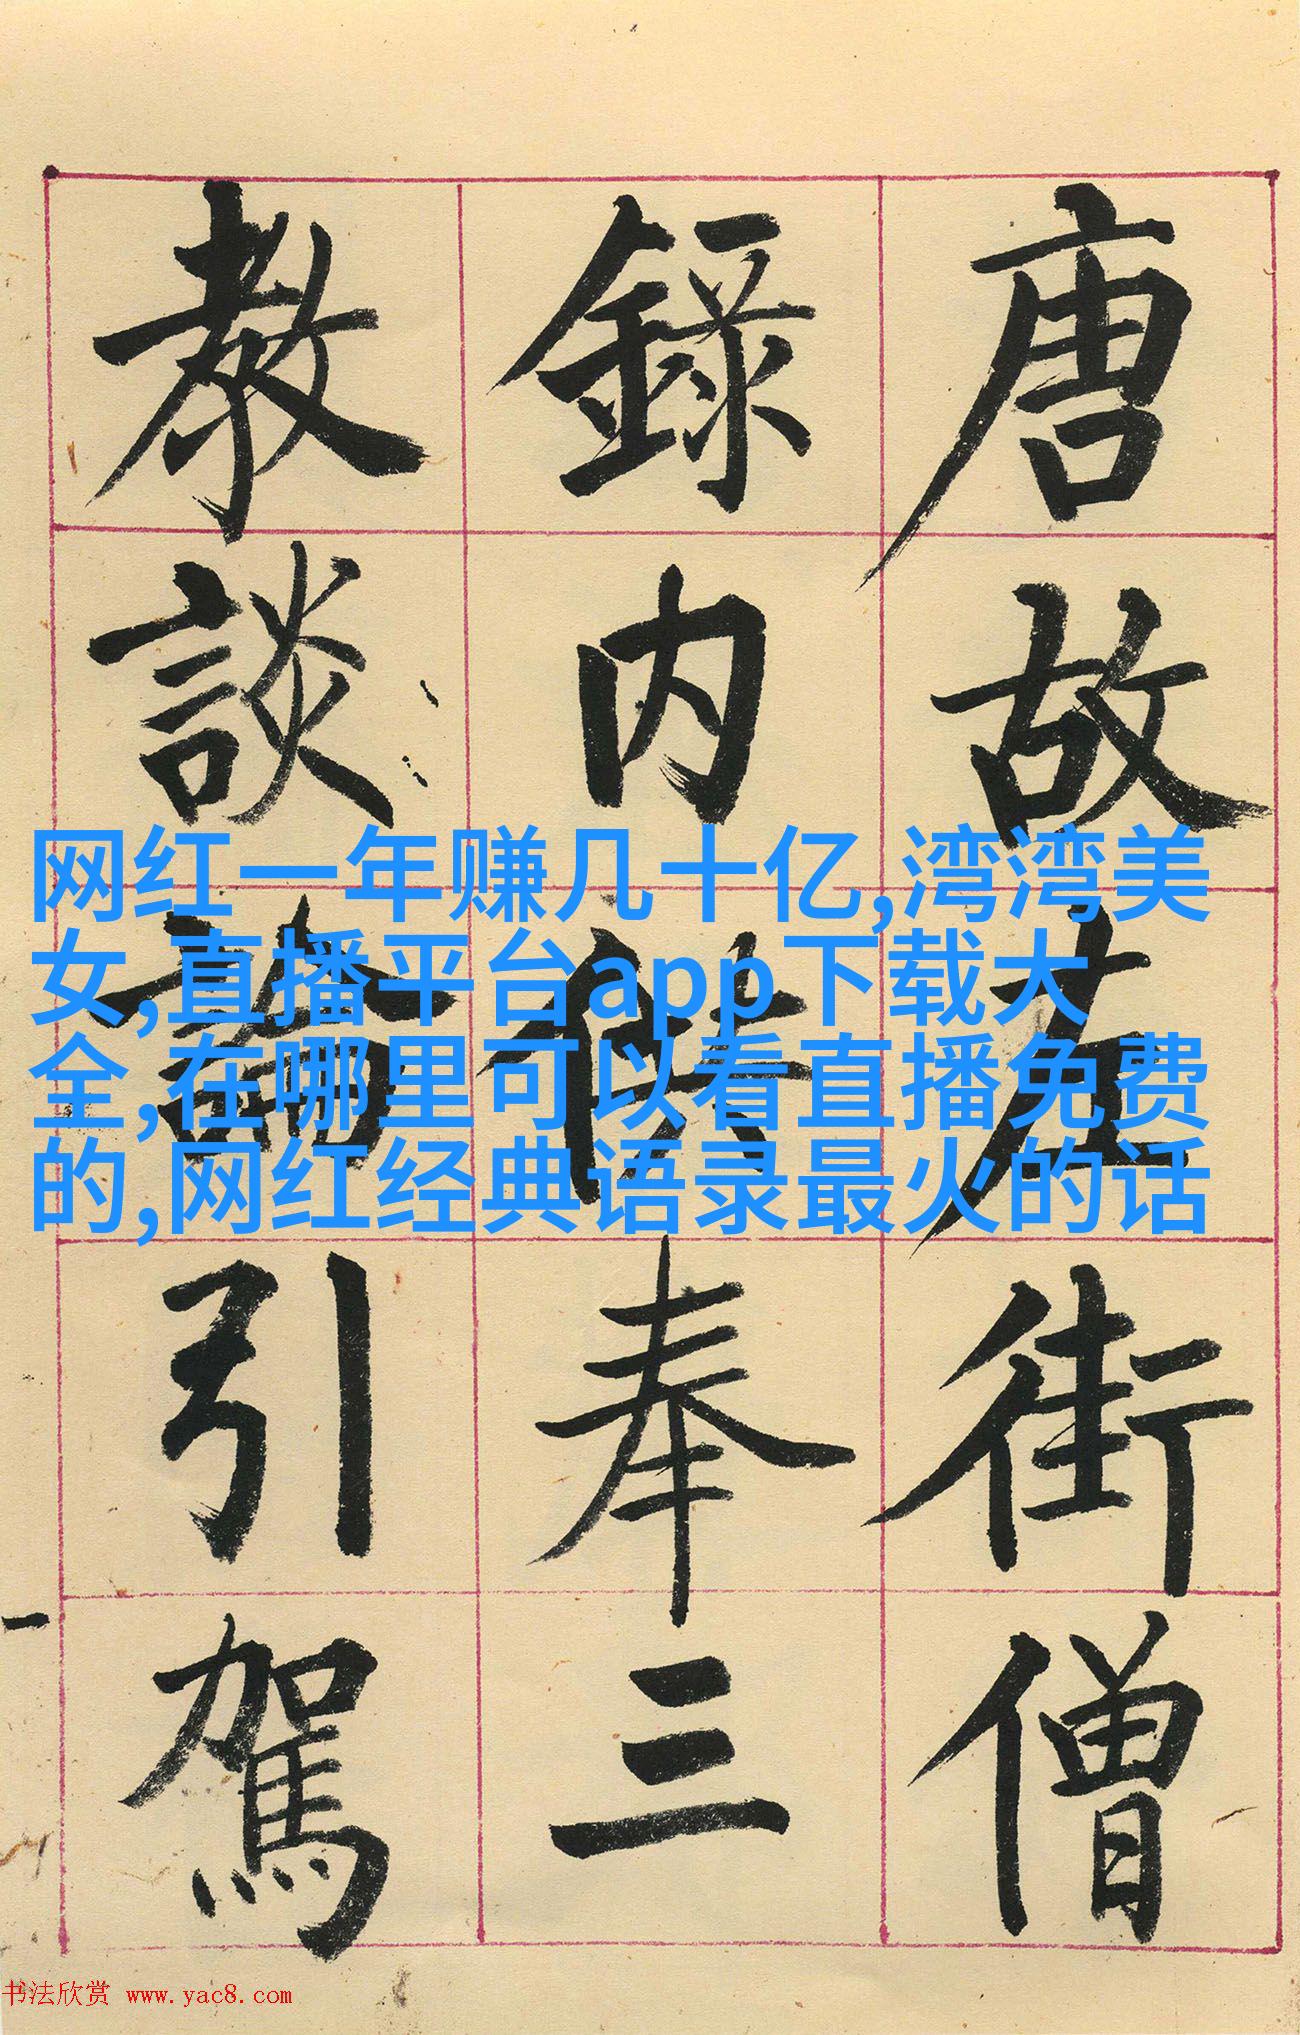 唐故左街僧
錄内供奉三
教談論引駕
网红一年赚几十亿,湾湾美
女,直播平台app下载大
全,在哪里可以看直播免费
的,网红经典语录最火的话
书法欣赏 www.yac8.com